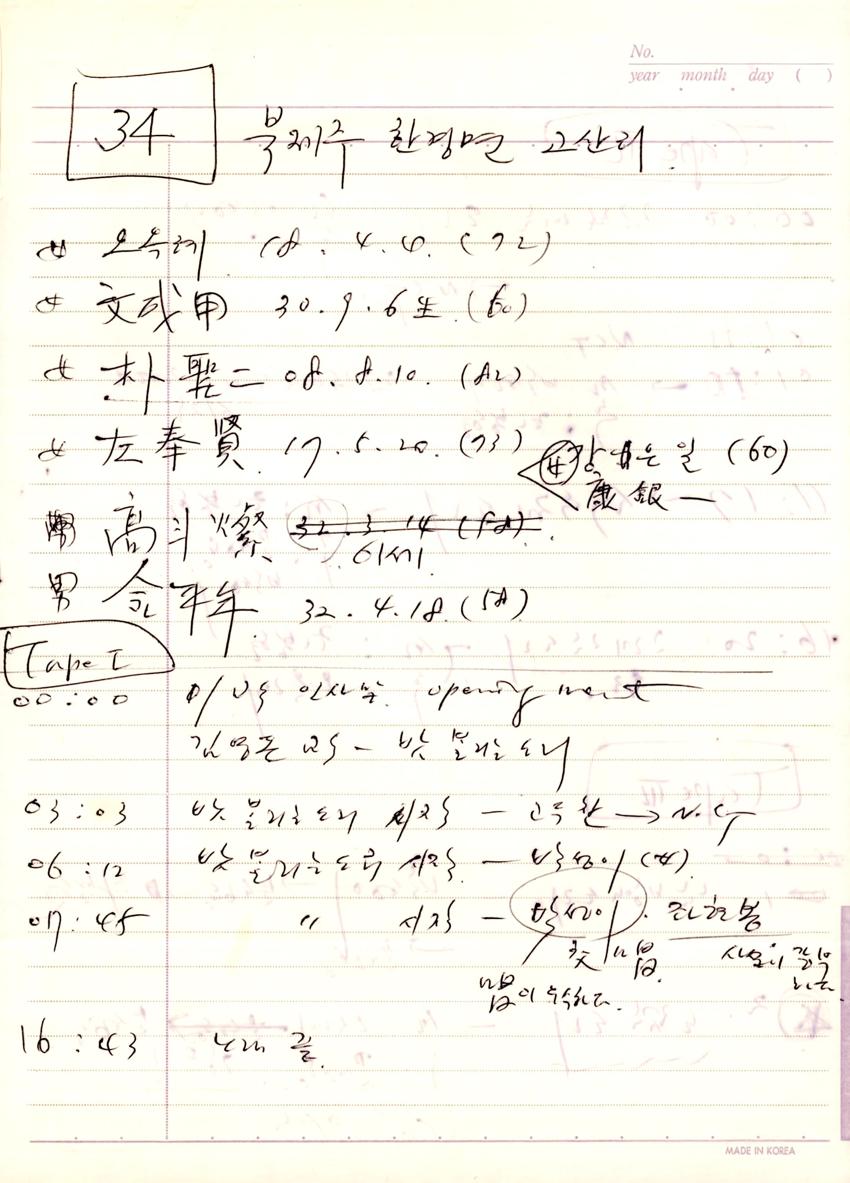 No.
year month day ( )
34 북제주 한경면 고산리.
女 오옥례 18. 4. 4. (72)
女 文成甲 30. 9. 6生 (60)
女 朴聖二 08. 8. 10. (82)
女 左奉賢 17. 5. 20. (73)
女 강은일 (60)
康銀一
男 高斗燦 32. 3 14 (58).
이세
男 平年 32. 4. 18 (58)
Tape I
00:00 인사말 opening ment
김영돈 교수 - 밧 볼리는 소리
03:03 밧 볼리는 소리 시작 - 고두찬 → N.G
06:12 밧 볼리는 소리 시작 - 박성이 (女).
07:45 〃 시작 - 박성이 · 좌현봉
16:43 노래 끝.
MADE IN KOREA